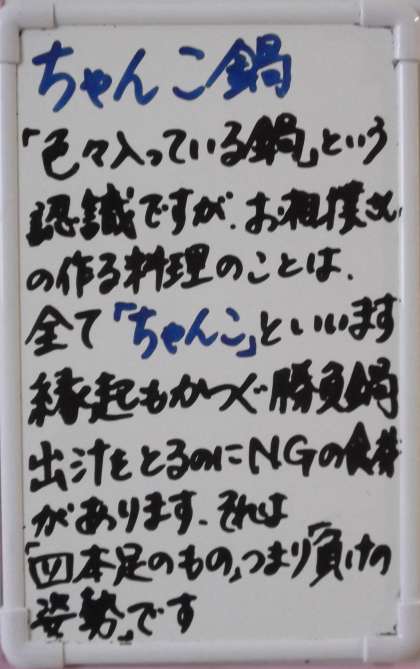 ちゃんこ鍋
「色々入っている鍋」という
認識ですが、お相撲さん
の作る料理のことは、
全て「ちゃんこ」といいます
縁起もかつぐ勝負鍋
出汁をとるのにNGの食材
があります。それは
「四本足のもの」つまり「負けの
姿勢」です